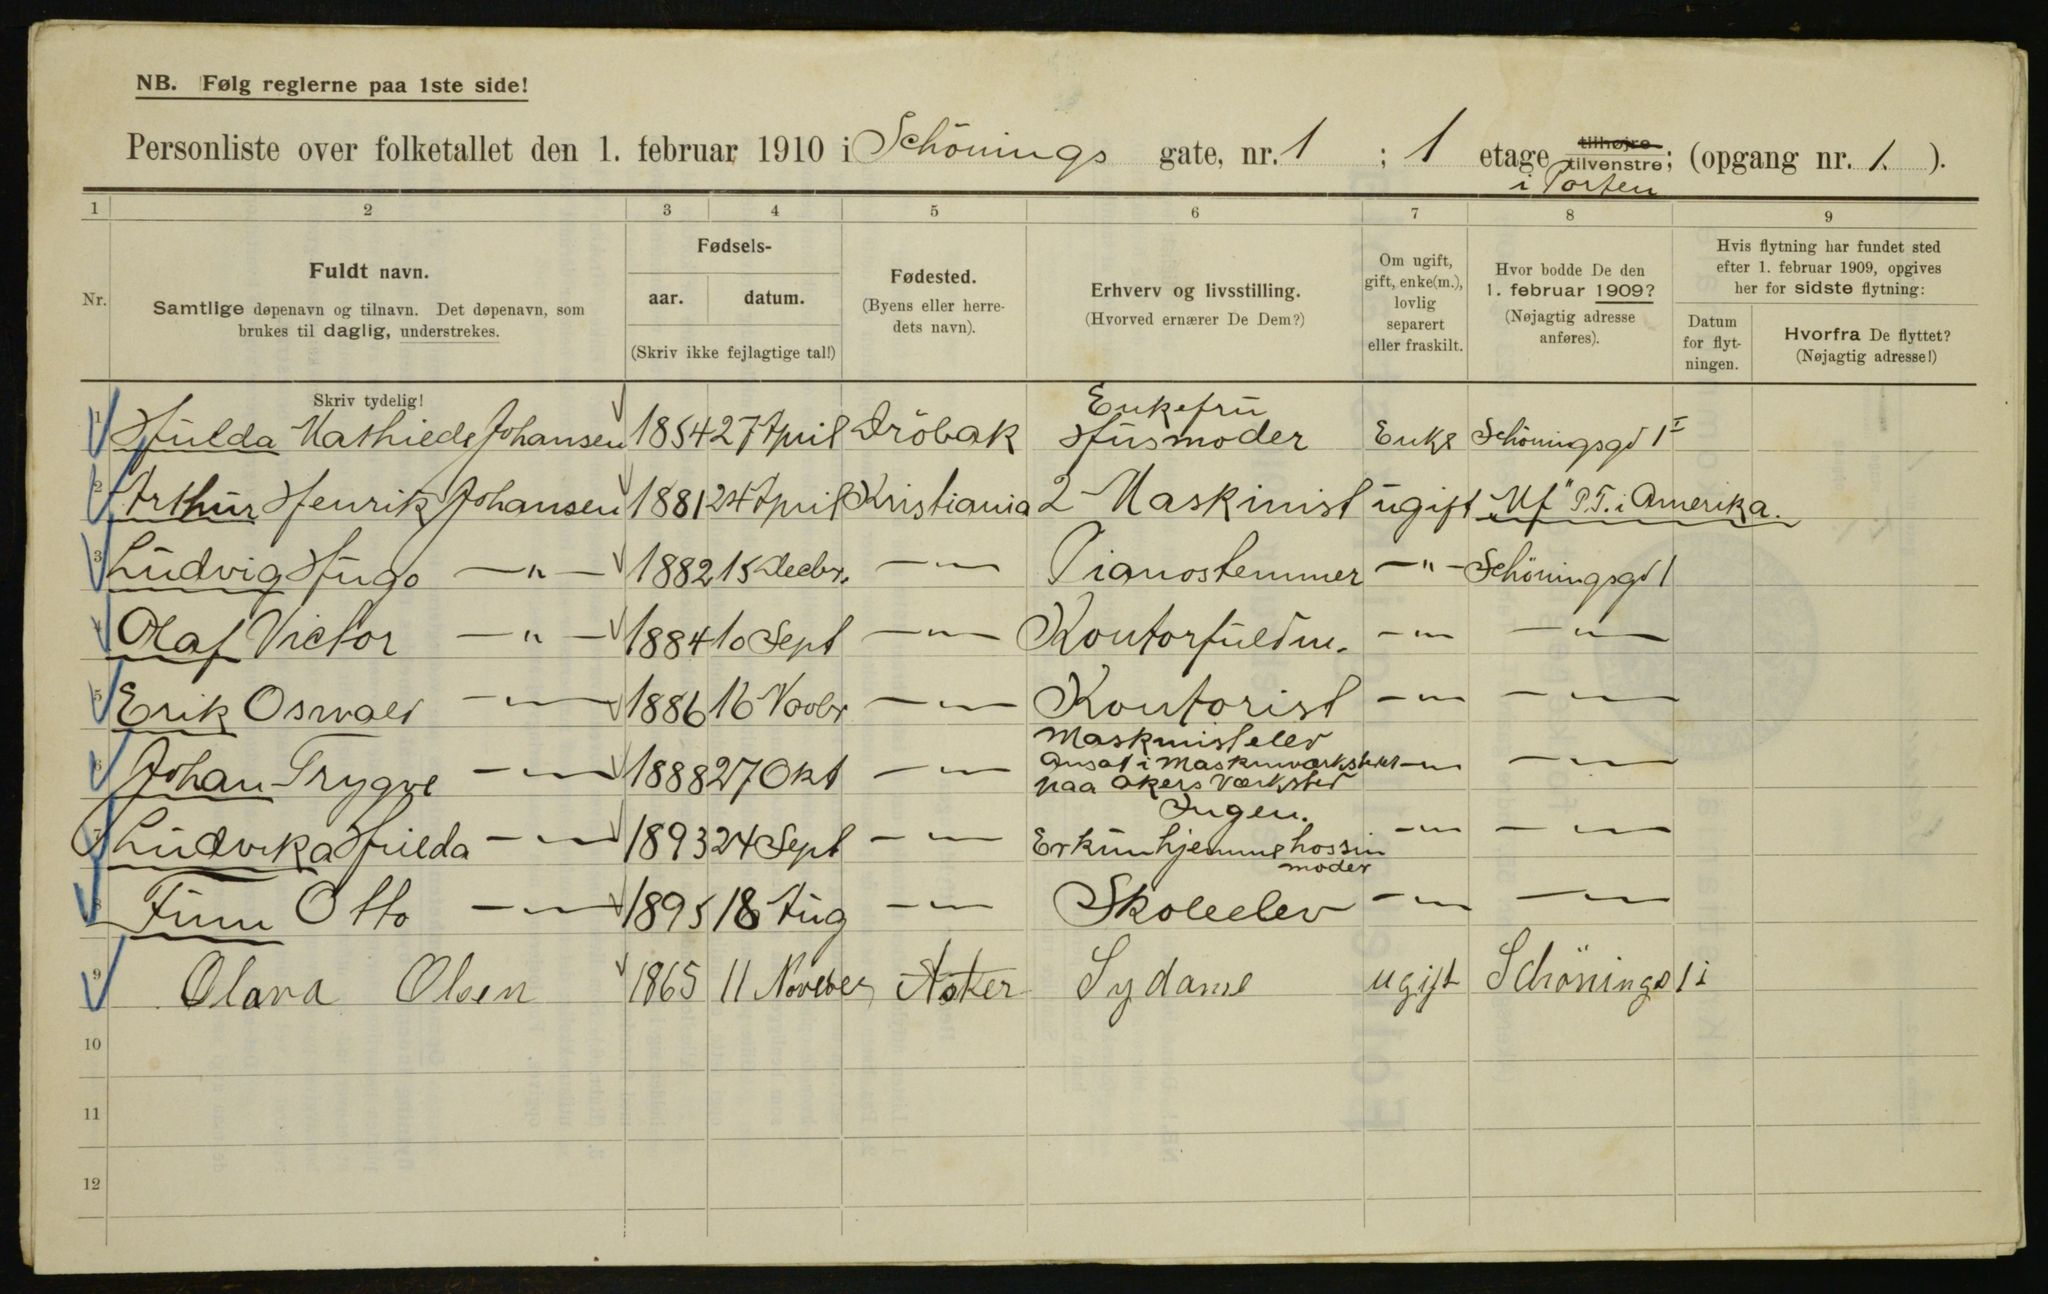 NB. Følg reglerne paa 1ste side!
Personliste over folketallet den 1. februar 1910 i Schönings gate, nr. 1 ; 1 etage tilhøjre tilvenstre; (opgang nr. 1. ).
i Porten
1 2 3 4 5 6 7 8 9
Nr.
Fuldt navn.
Samtlige døpenavn og tilnavn. Det døpenavn, som
brukes til daglig, understrekes.
Fødsels-
aar. datum.
(Skriv ikke fejlagtige tal!)
Fødested.
(Byens eller herre-
dets navn).
Erhverv og livsstilling.
(Hvorved ernærer De Dem?)
Om ugift,
gift, enke(m.),
lovlig
separert
eller fraskilt.
Hvor bodde De den
1. februar 1909?
(Nøjagtig adresse
anføres).
Hvis flytning har fundet sted
efter 1. februar 1909, opgives
her for sidste flytning:
Datum
for flyt-
ningen.
Hvorfra De flyttet?
(Nøjagtig adresse!)
Skriv tydelig!
Enkefru
1 Hulda Mathilde Johansen 1854 27 April Dröbak Husmoder Enke Schöningsgd 1 I
2 Arthur Henrik Johansen 1881 24 April Kristiania 2 Maskinist ugift P.T. i Amerika.
3 Ludvig Hugo —"— 1882 15 Decbr. —"— Pianostemmer —"— Schöningsgd 1
4 Olaf Victor —"— 1884 10 Sept —"— Kontorfuldm. —"— —"—
5 Erik Oswald —"— 1886 16 Novbr —"— Kontorist —"— —"—
Maskinistelev
6 Johan Trygve —"— 1888 27 Okt —"— Ansat i Maskinværkstedet —"— —"—
paa Akers Værksted
Ingen.
7 Ludvika Hilda —"— 1893 24 Sept —"— Er kun hjemme hos sin —"— —"—
moder
8 Finn Otto —"— 1895 18 Aug —"— Skoleelev —"— —"—
9 Olava Olsen 1865 11 November Aker Sydame ugift Schönings 1 i
10
11
12